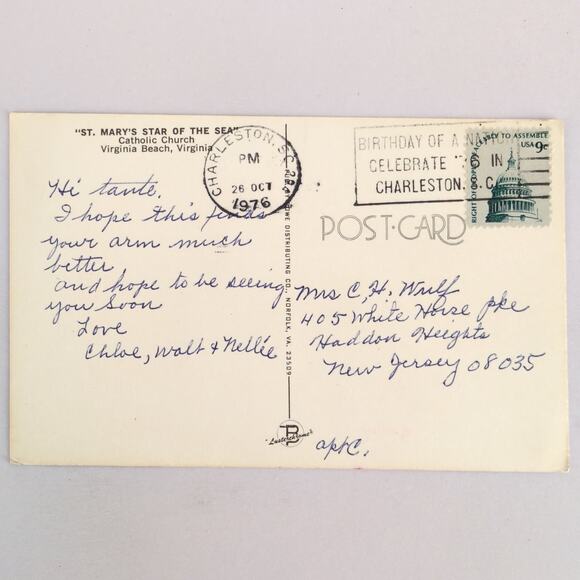 "ST. MARY'S STAR OF THE SEA"
Catholic Church
Virginia Beach, Virginia
Hi tante,
I hope this finds
your arm much
better
and hope to be seeing
you soon
Love
Chloe, Walt & Nellie
CHARLESTON, SC 294
PM
26 OCT
1976
BIRTHDAY OF A NATION
CELEBRATE '76 IN
CHARLESTON, S.C.
TO ASSEMBLE
USA 9c
RIGHT OF PEOPLE
POST CARD
DISTRIBUTING CO., NORFOLK, VA. 23509
Mrs C, H. Wulf
405 White Horse pke
Haddon Heights
New Jersey 08035
apt C.
"Lusterchrome"